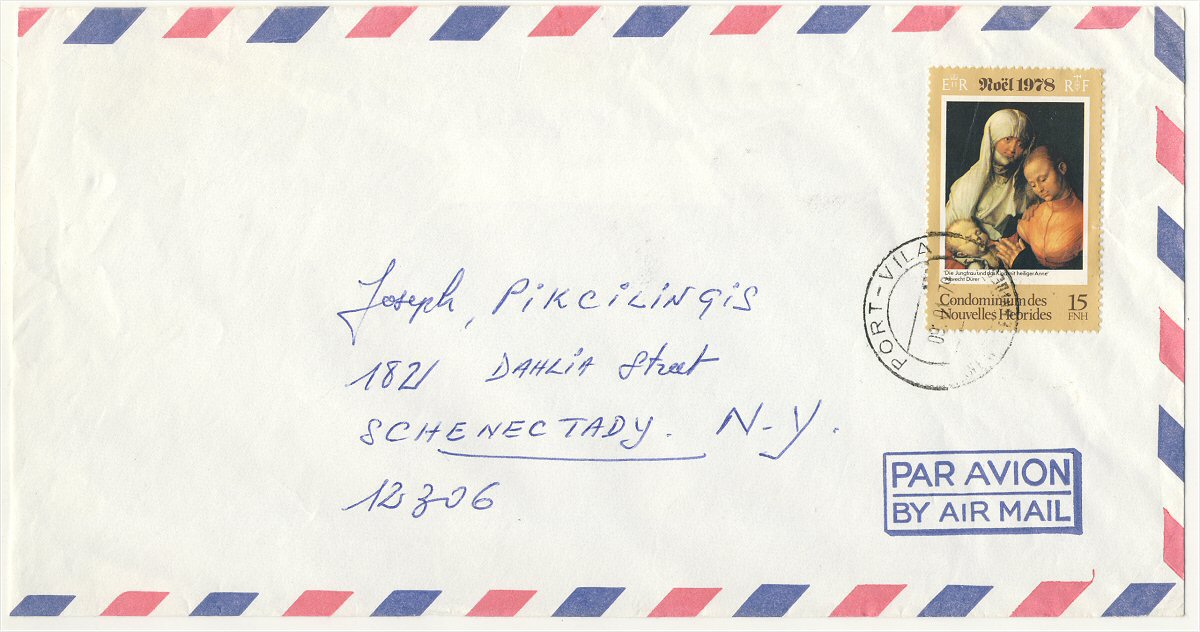 E II R Noël 1978 RF
"Die Jungfrau und das Kind mit heiliger Anne"
Albrecht Dürer
Condominium des
Nouvelles Hebrides
15
FNH
PORT-VILA
Joseph, PiKCiLiNGiS
1821 DAHLiA Street
SCHENECTADY. N-Y.
12306
PAR AVION
BY AIR MAIL